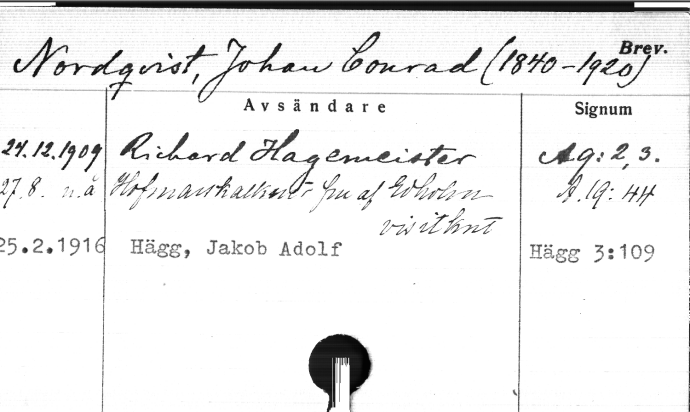 Brev.
Nordqvist, Johan Conrad (1840-1920)
Avsändare Signum
24.12.1909 Richard Hagemeister Ag: 2, 3.
27.8. n.å Hofmarskalken fru af Edholm A.19: 44
visitkort
25.2.1916 Hägg, Jakob Adolf Hägg 3:109